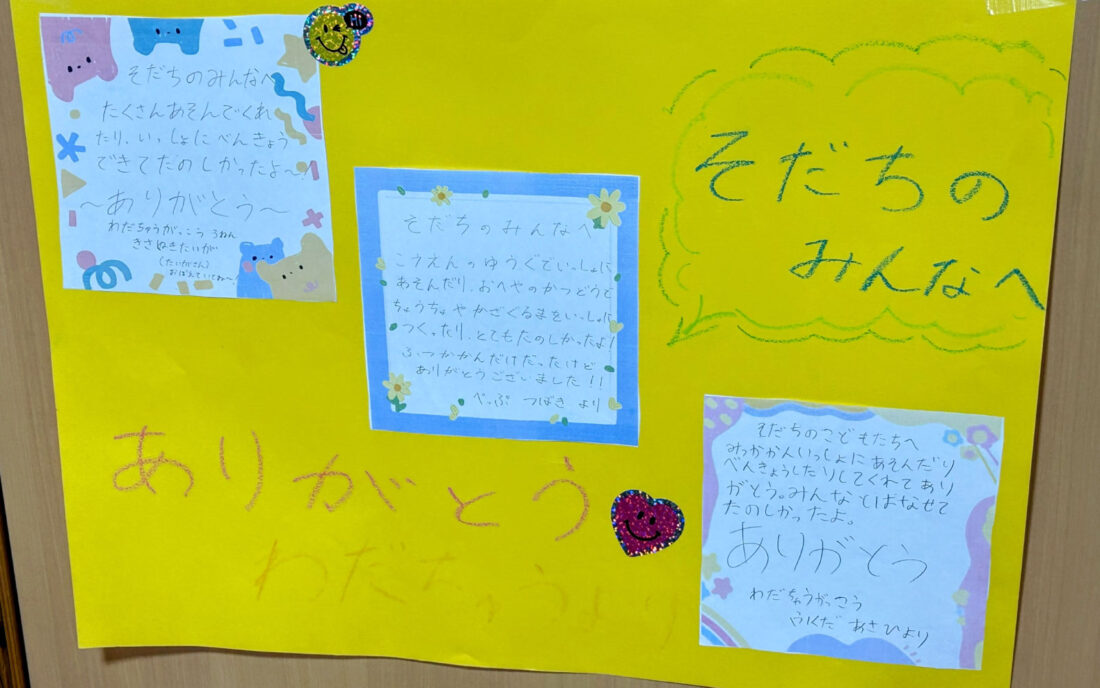 そだちのみんなへ
たくさんあそんでくれ
たり、いっしょにべんきょう
できてたのしかったよ〜!
〜ありがとう〜
わだちゅうがっこう 3ねん
きさぬきたいが
(たいがさん)
おぼえていてね〜)
Hi
そだちの
みんなへ
そだちのみんなへ
こうえんのゆうぐでいっしょに
あそんだり、おへやのかつどうで
ちょうちょやかざぐるまをいっしょに
つくったり、とてもたのしかったよ!
ふつかかんだけだったけど
ありがとうございました!!
べっぷ つばき より
ありがとう
わだちゅうより
そだちのこどもたちへ
みっかかんいっしょにあそんだり
べんきょうしたりしてくれてあり
がとう。みんなとはなせて
たのしかったよ。
ありがとう
わだちゅうがっこう
ふくだ あさひより